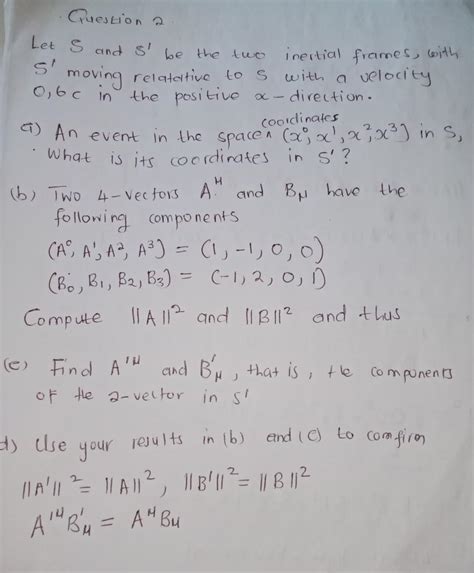 Question 2
Let S and S' be the two inertial frames, with
S' moving relatative to S with a velocity
0,6c in the positive x-direction.
coordinates
a) An event in the space^ (x⁰, x¹, x², x³) in S,
What is its coordinates in S'?
(b) Two 4-vectors A^μ and B_μ have the
following components
(A⁰, A¹, A², A³) = (1, -1, 0, 0)
(B₀, B₁, B₂, B₃) = (-1, 2, 0, 1)
Compute ||A||² and ||B||² and thus
(c) Find A'^μ and B'_μ, that is, the components
of the 2-vector in S'
d) Use your results in (b) and (c) to comfirm
||A'||² = ||A||², ||B'||² = ||B||²
A'^μ B'_μ = A^μ B_μ